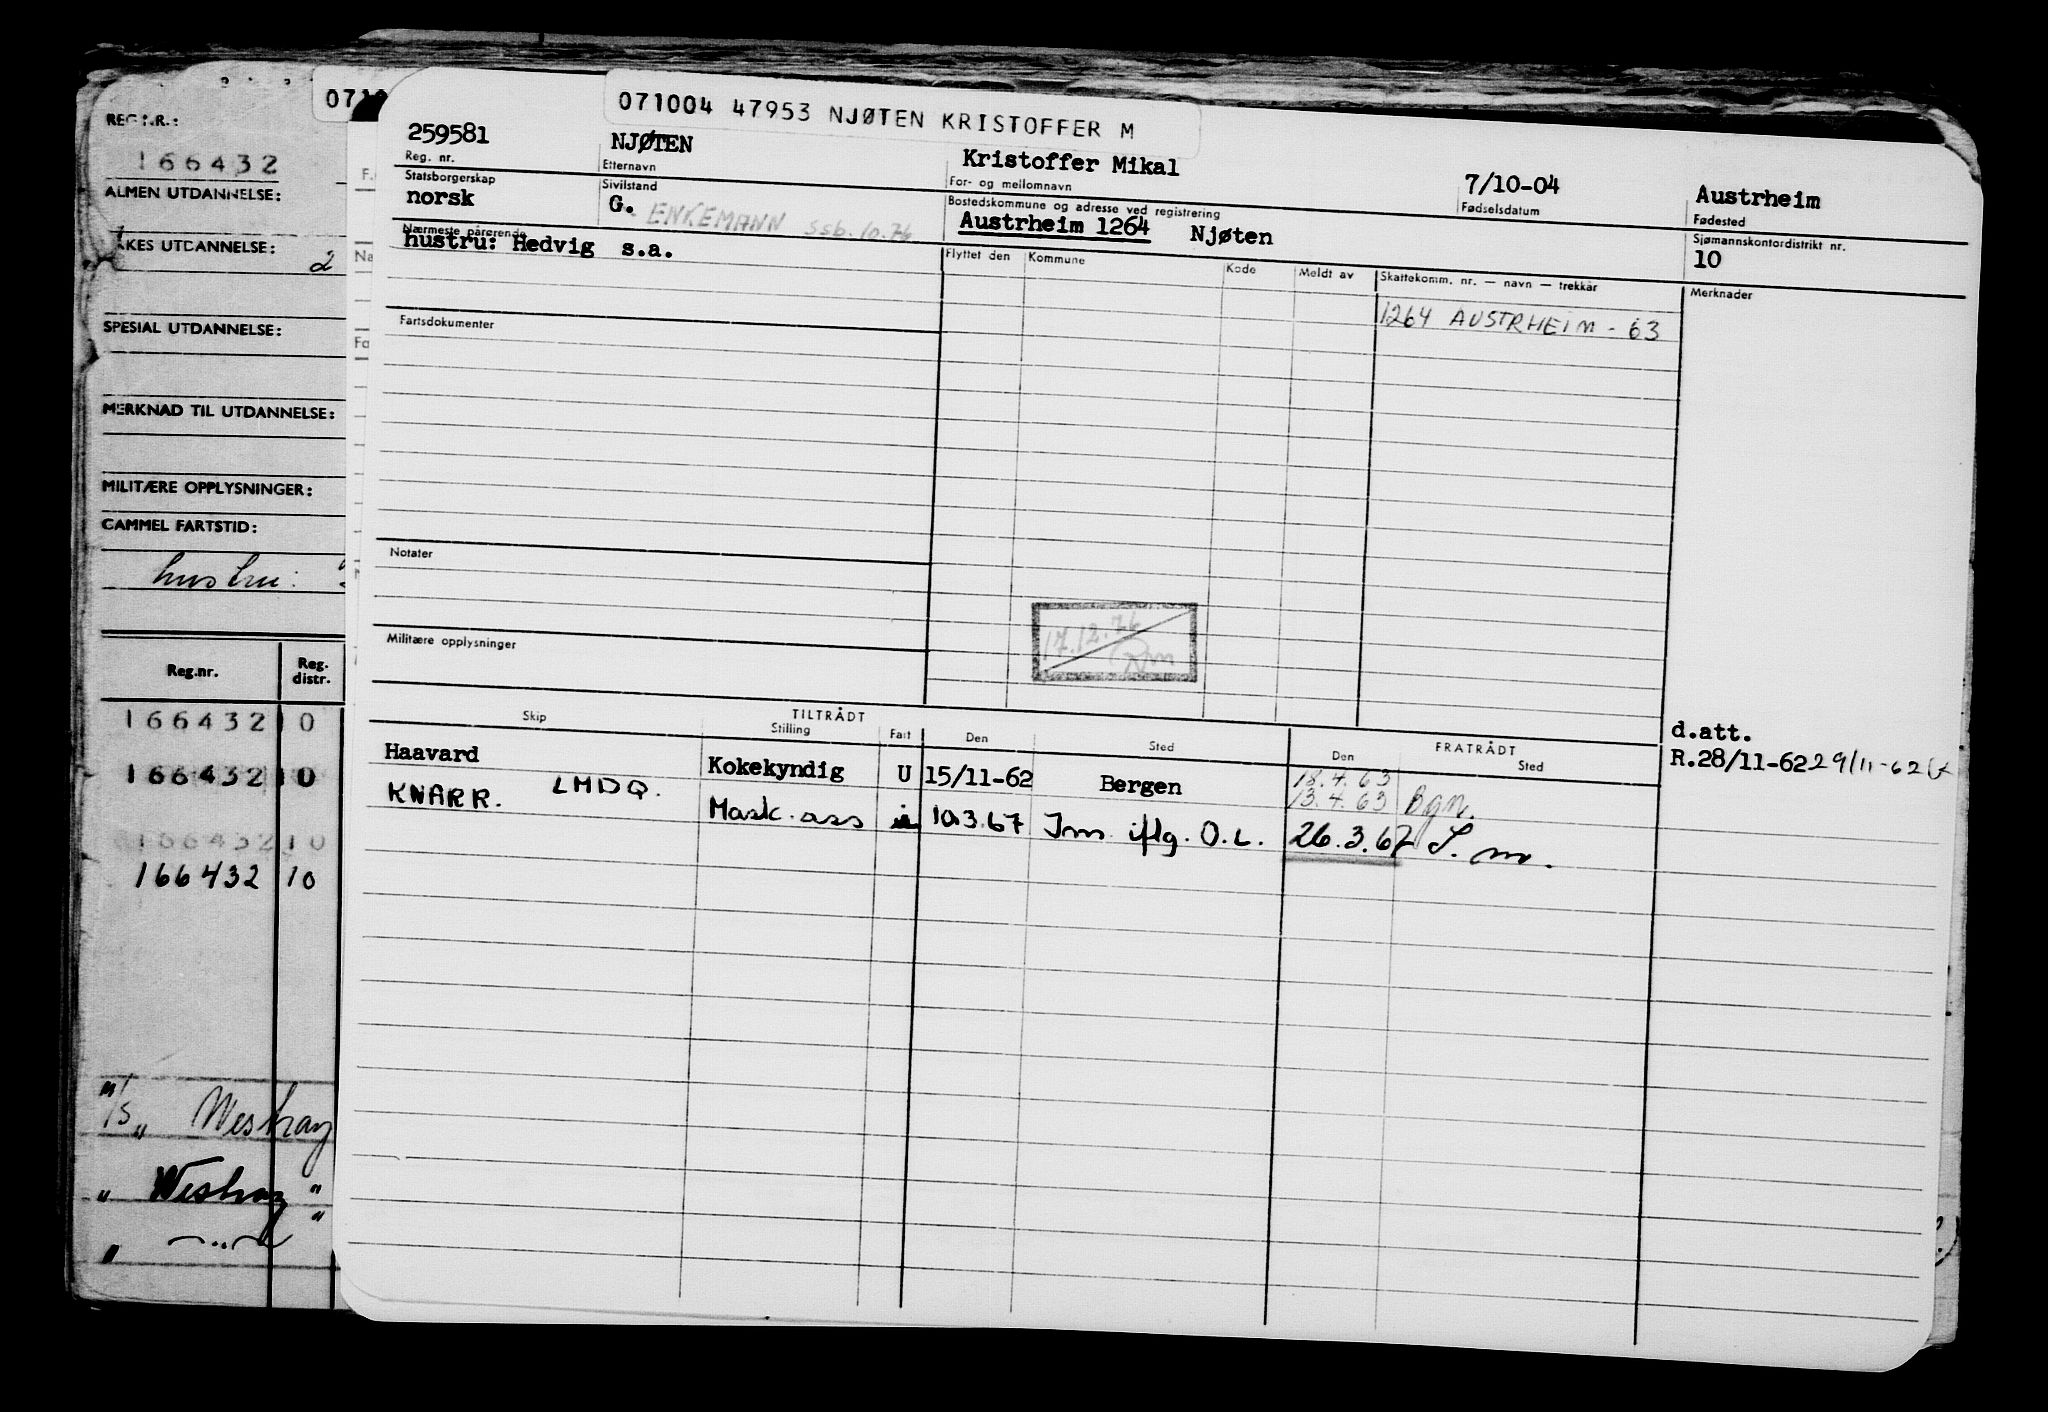 REG.NR.:
166432
ALMEN UTDANNELSE:
UTDANNELSE:
2
SPESIAL UTDANNELSE:
MERKNAD TIL UTDANNELSE:
MILITÆRE OPPLYSNINGER:
GAMMEL FARTSTID:
hustru:
Reg.nr. Reg. distr.
166432 10
166432 10
166432 10
166432 10
Westray
Westray "
" — " — "
071004 47953 NJØTEN KRISTOFFER M
259581 NJØTEN Kristoffer Mikal 7/10-04 Austrheim
Reg. nr. Etternavn For- og mellomnavn Fødselsdatum Fødested
Statsborgerskap Sivilstand Bostedskommune og adresse ved registrering Sjømannskontordistrikt nr.
norsk G. ENKEMANN SSB. 10.76 Austrheim 1264 Njøten 10
Nærmeste pårørende Flyttet den Kommune Kode Meldt av Skattekomm. nr. — navn — trekkår Merknader
hustru: Hedvig s.a.
1264 AUSTRHEIM - 63
Fartsdokumenter
Notater
17.12.76
Militære opplysninger
Skip TILTRÅDT FRATRÅDT
Stilling Fart Den Sted Den Sted
d.att.
Haavard Kokekyndig U 15/11-62 Bergen 18.4.63 R.28/11-62 29/11-62
13.4.63 Bgn.
KNARR. LMDQ. Mask. ass 10.3.67 Inn iflg. O.L. 26.3.67 S. m.